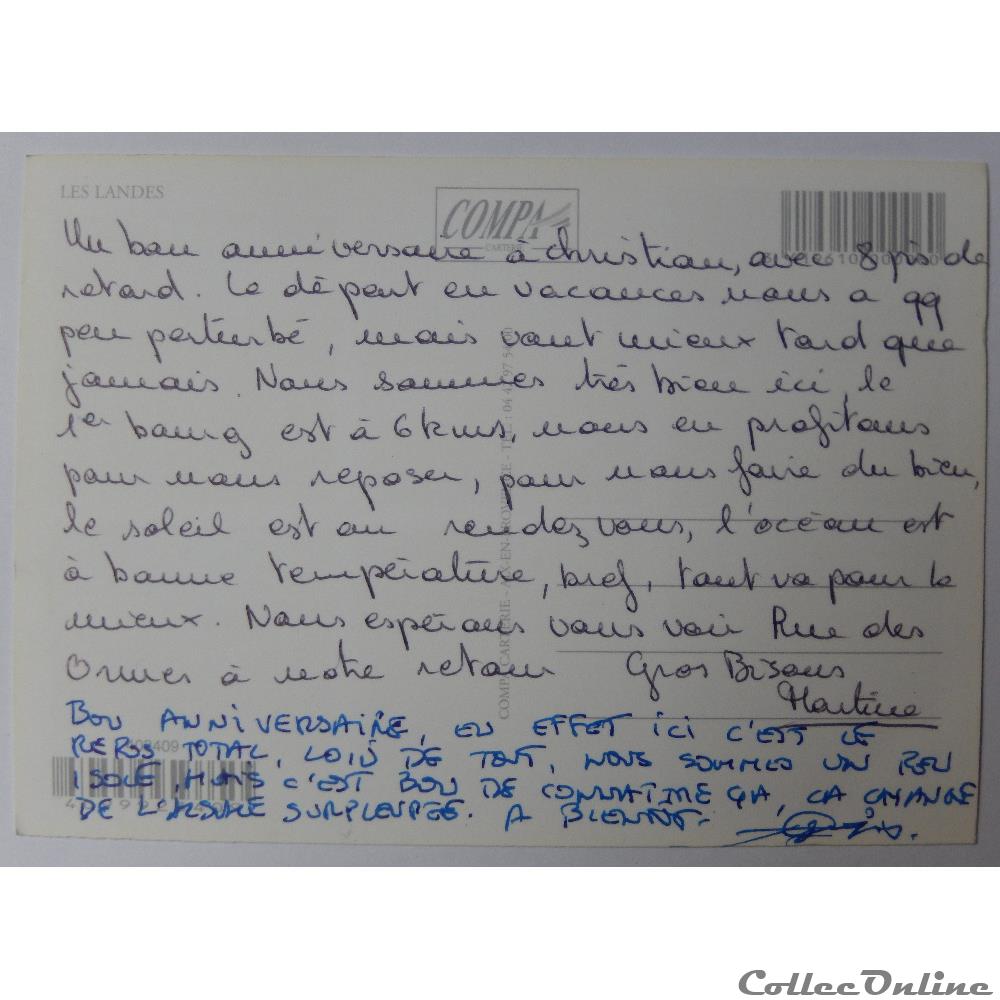 LES LANDES
COMPA
CARTERIE
Un bon anniversaire à Christian, avec 8 jrs de
retard. Le départ en vacances nous a qq
peu perturbé, mais vaut mieux tard que
jamais. Nous sommes très bien ici, le
1er bourg est à 6 kms, nous en profitons
pour nous reposer, pour nous faire du bien,
le soleil est au rendez vous, l'océan est
à bonne température, bref, tout va pour le
mieux. Nous espérons vous voir Rue des
Ormes à notre retour Gros Bisous
Martine
BON ANNIVERSAIRE, EN EFFET ICI C'EST LE
REPOS TOTAL, LOIN DE TOUT, NOUS SOMMES UN PEU
ISOLÉ, MAIS C'EST BON DE CONNAITRE ÇA, ÇA CHANGE
DE L'ALSACE SURPEUPLÉE. A BIENTÔT.
COMPA CARTERIE - AIX-EN-PROVENCE - TEL : 04 42 97
CollecOnline